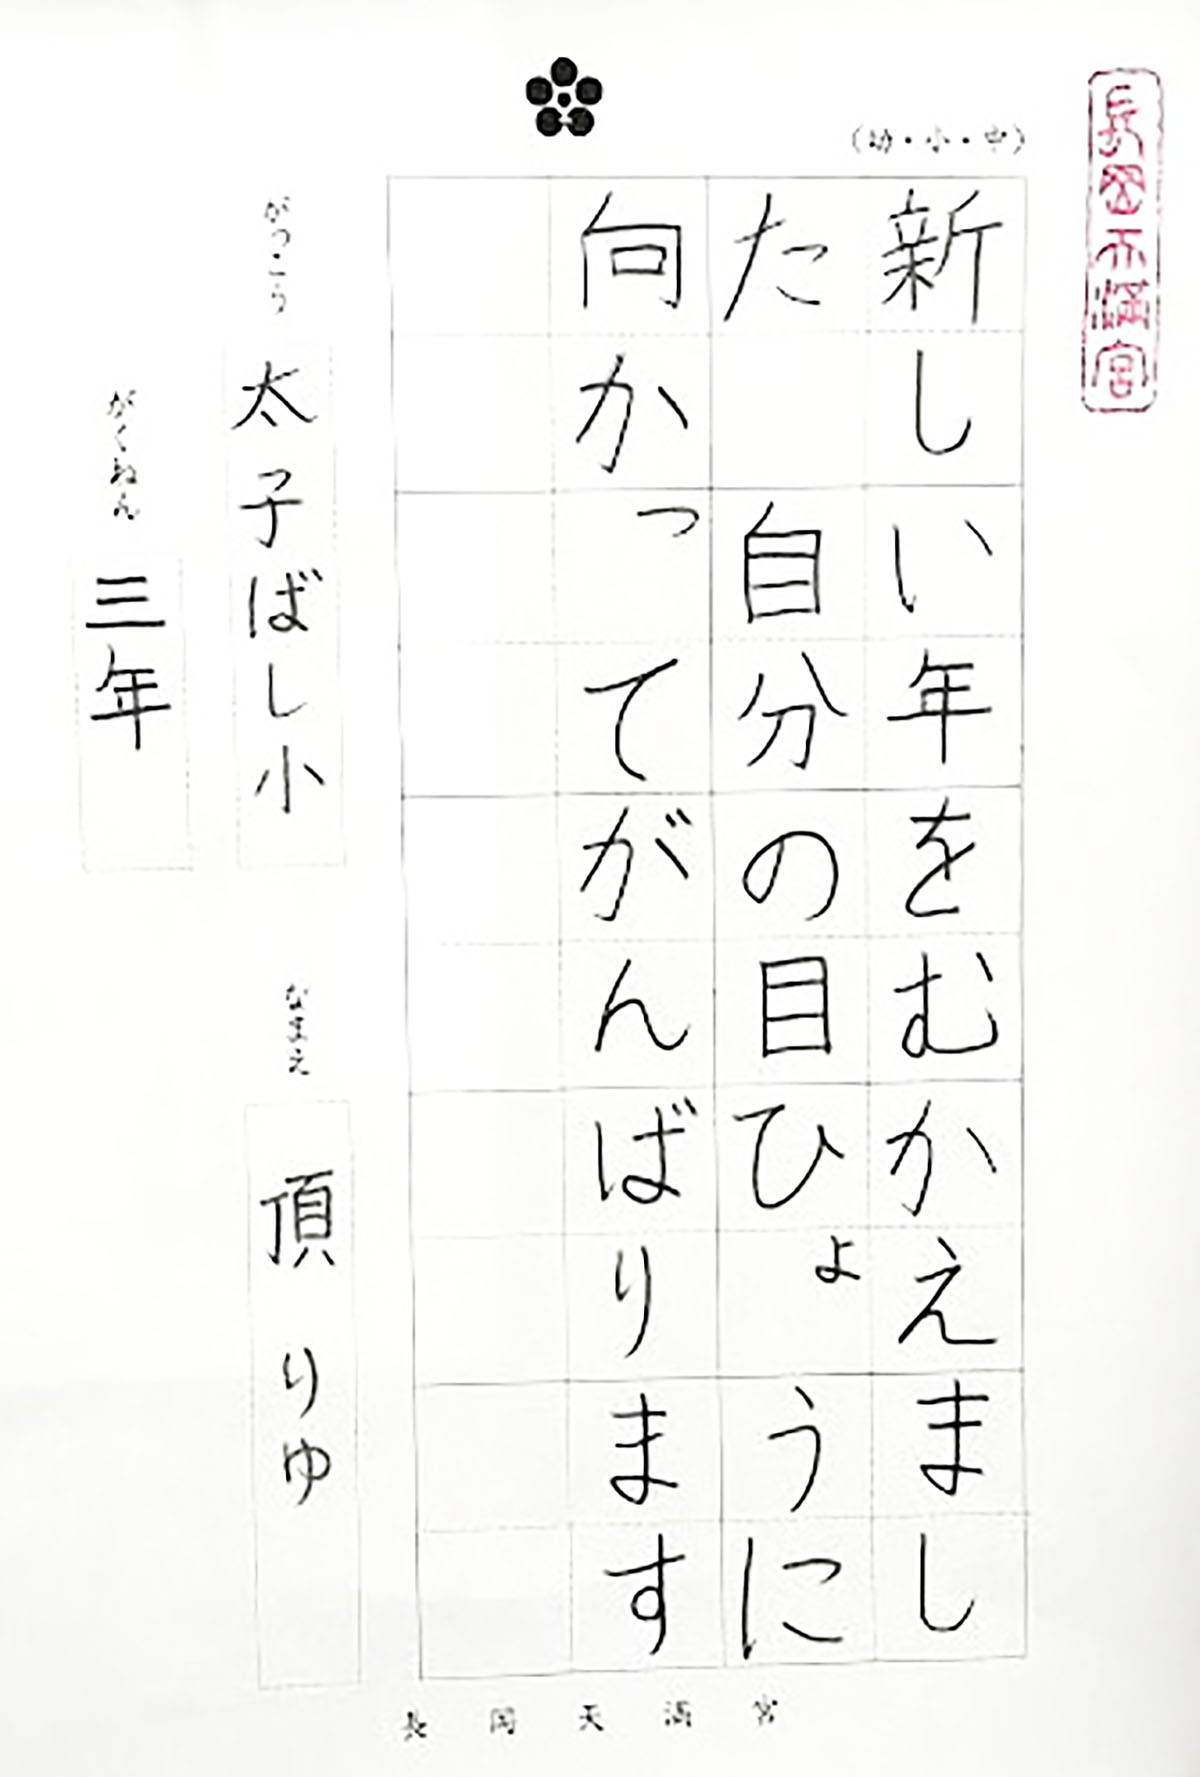 長岡天満宮
(幼・小・中)
新しい年をむかえまし
た 自分の目ひょうに
向かってがんばります
がっこう
太子ばし小
なまえ
頂 りゅ
がくねん
三年
長岡天満宮